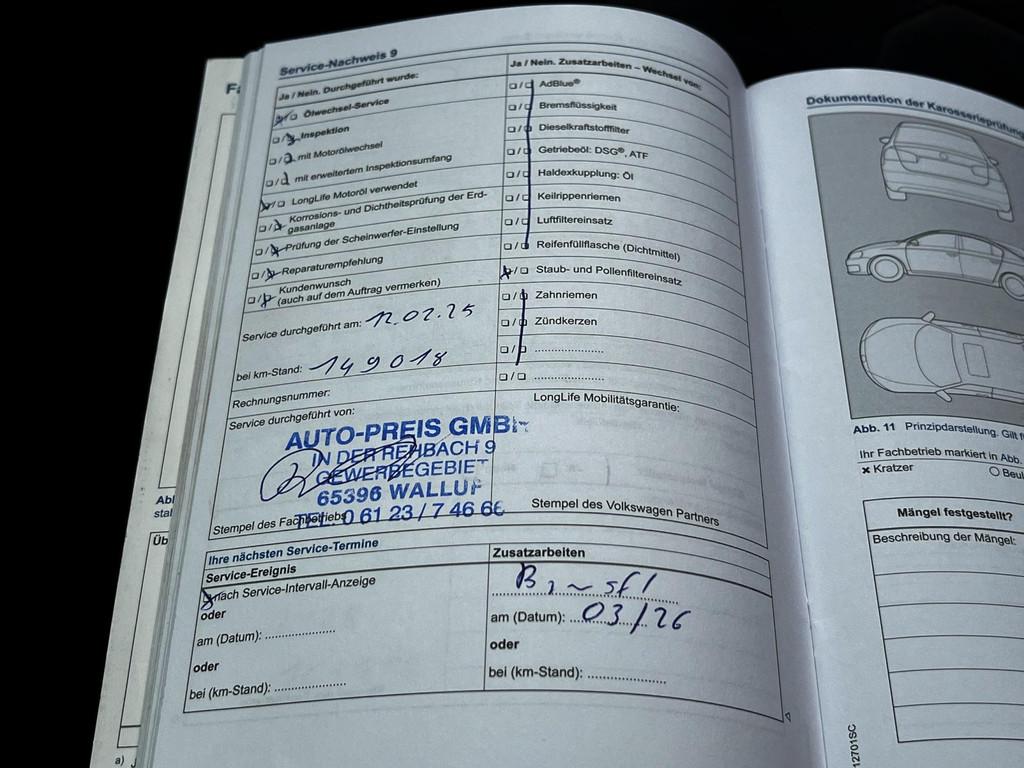 Service-Nachweis 9
Ja / Nein. Durchgeführt wurde:
Ölwechsel-Service
Inspektion
mit Motorölwechsel
mit erweitertem Inspektionsumfang
LongLife Motoröl verwendet
Korrosions- und Dichtheitsprüfung der Erd-
gasanlage
Prüfung der Scheinwerfer-Einstellung
Reparaturempfehlung
Kundenwunsch
(auch auf dem Auftrag vermerken)
Service durchgeführt am: 12.02.25
bei km-Stand: 149018
Rechnungsnummer:
Service durchgeführt von:
AUTO-PREIS GMBH
IN DER REHBACH 9
GEWERBEGEBIET
65396 WALLUF
TEL. 0 61 23 / 7 46 66
Stempel des Fachbetriebs
Ja / Nein. Zusatzarbeiten – Wechsel von:
AdBlue®
Bremsflüssigkeit
Dieselkraftstofffilter
Getriebeöl: DSG®, ATF
Haldexkupplung: Öl
Keilrippenriemen
Luftfiltereinsatz
Reifenfüllflasche (Dichtmittel)
Staub- und Pollenfiltereinsatz
Zahnriemen
Zündkerzen
LongLife Mobilitätsgarantie:
Stempel des Volkswagen Partners
Ihre nächsten Service-Termine
Service-Ereignis
nach Service-Intervall-Anzeige
oder
am (Datum): ....................
oder
bei (km-Stand): ....................
Zusatzarbeiten
am (Datum): 03/26
oder
bei (km-Stand): ....................
Dokumentation der Karosserieprüfung
Abb. 11 Prinzipdarstellung. Gilt
Ihr Fachbetrieb markiert in Abb.
× Kratzer
Mängel festgestellt?
Beschreibung der Mängel:
12701SC
a)